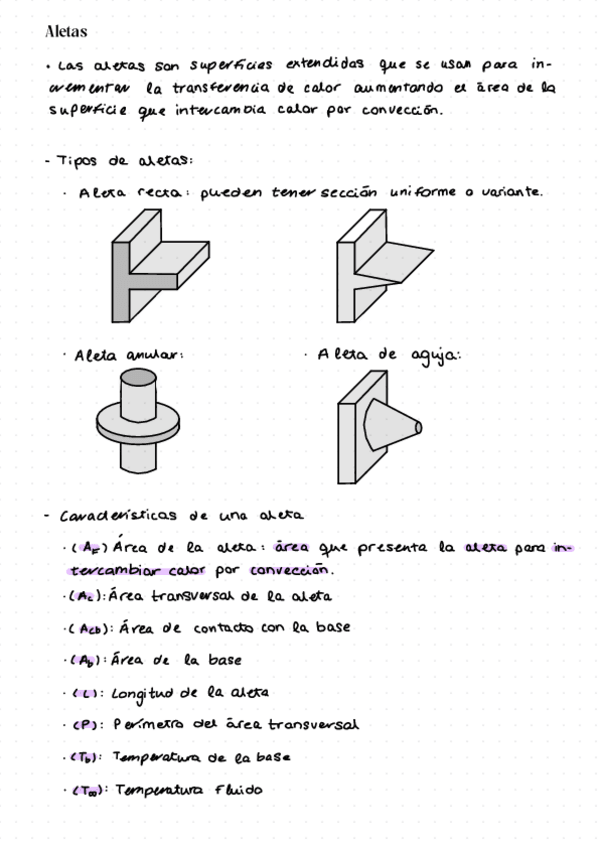 Aletas
· Las aletas son superficies extendidas que se usan para in-
crementar la transferencia de calor aumentando el área de la
superficie que intercambia calor por convección.
- Tipos de aletas:
· Aleta recta: pueden tener sección uniforme o variante.
· Aleta anular:
· Aleta de aguja:
- Características de una aleta
· (A_F) Área de la aleta: área que presenta la aleta para in-
tercambiar calor por convección.
· (Ac): Área transversal de la aleta
· (Acb): Área de contacto con la base
· (Ab): Área de la base
· (L): Longitud de la aleta
· (P): Perímetro del área transversal
· (Tb): Temperatura de la base
· (T∞): Temperatura fluido